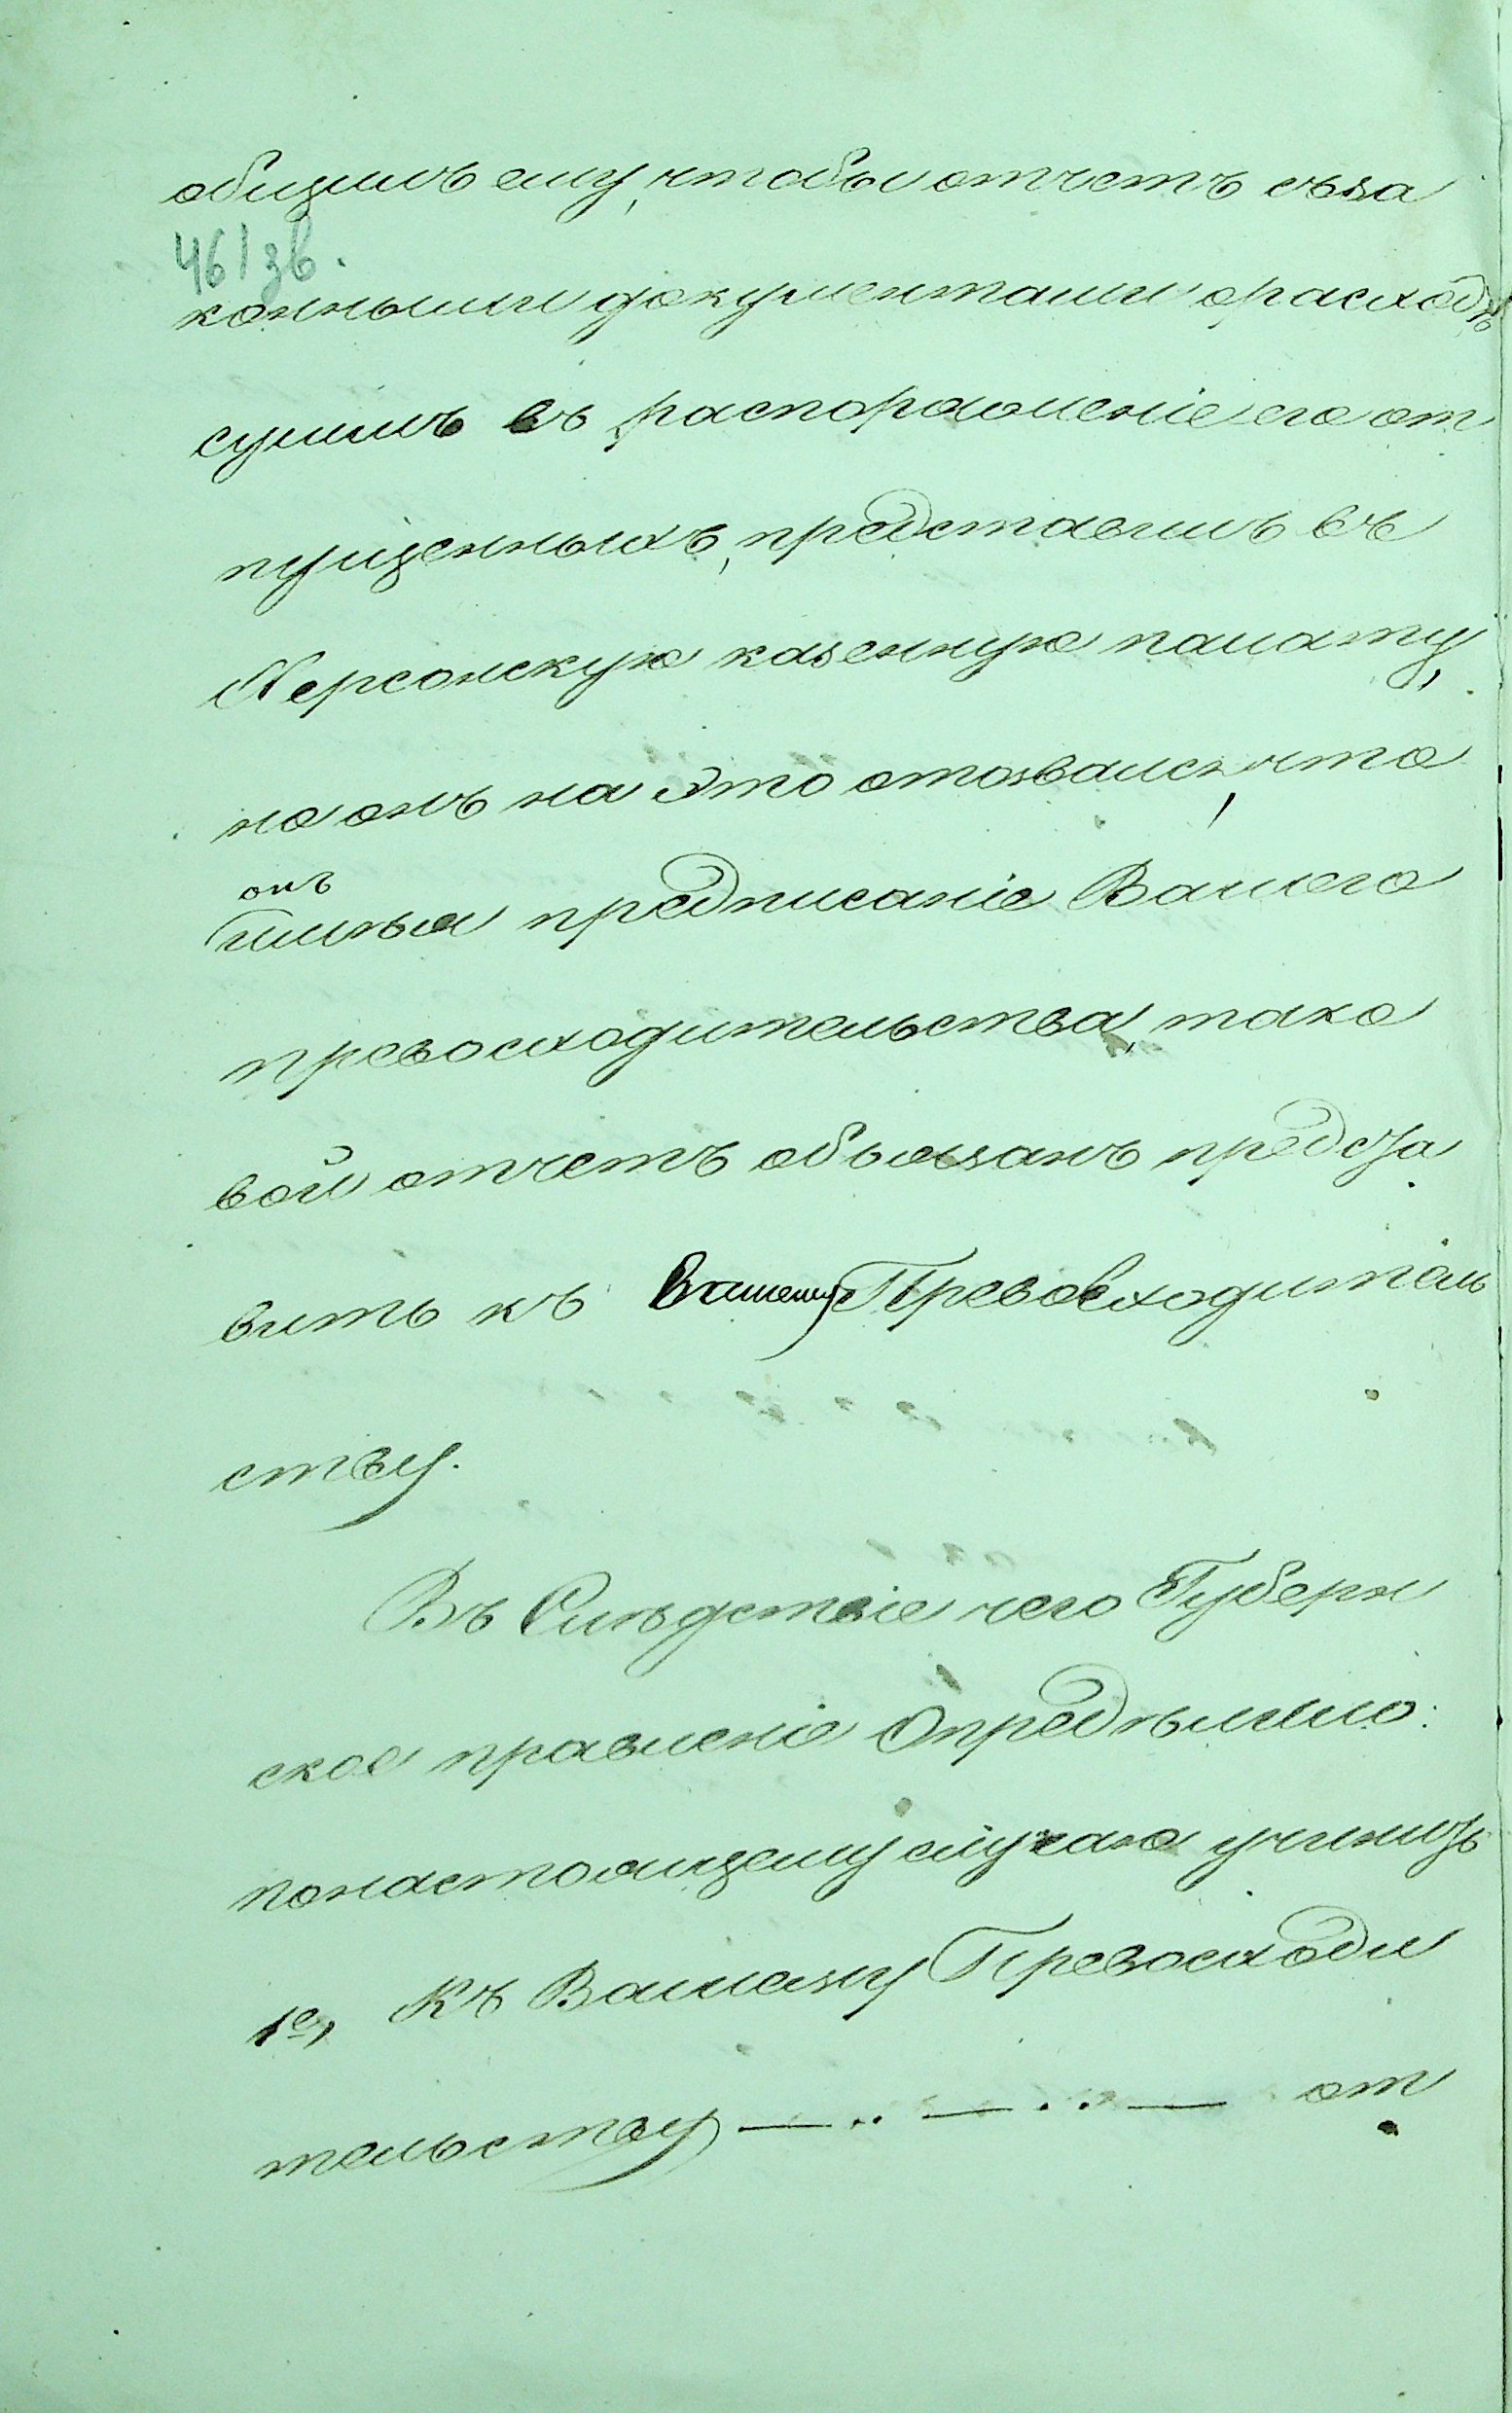 общилъ ему, чтобы отчетъ съза
46/зв.
конными документами орасходѣ
суммъ въ распоряженіе его от
пущенныхъ, представилъ въ
Херсонскую казенную палату,
но онъ на это отозвался, что
онъ
имѣя предписаніе Вашего
превосходительства, тако
вой отчетъ обязанъ предста
вить къ Вашему Превосходитель
ству.
Въ Слѣдствіе чего Губерн
ское правленіе Опредѣлило:
понастоящему случаю учинить
1е, Къ Вашему Превосходи
тельству — .. — .. — от